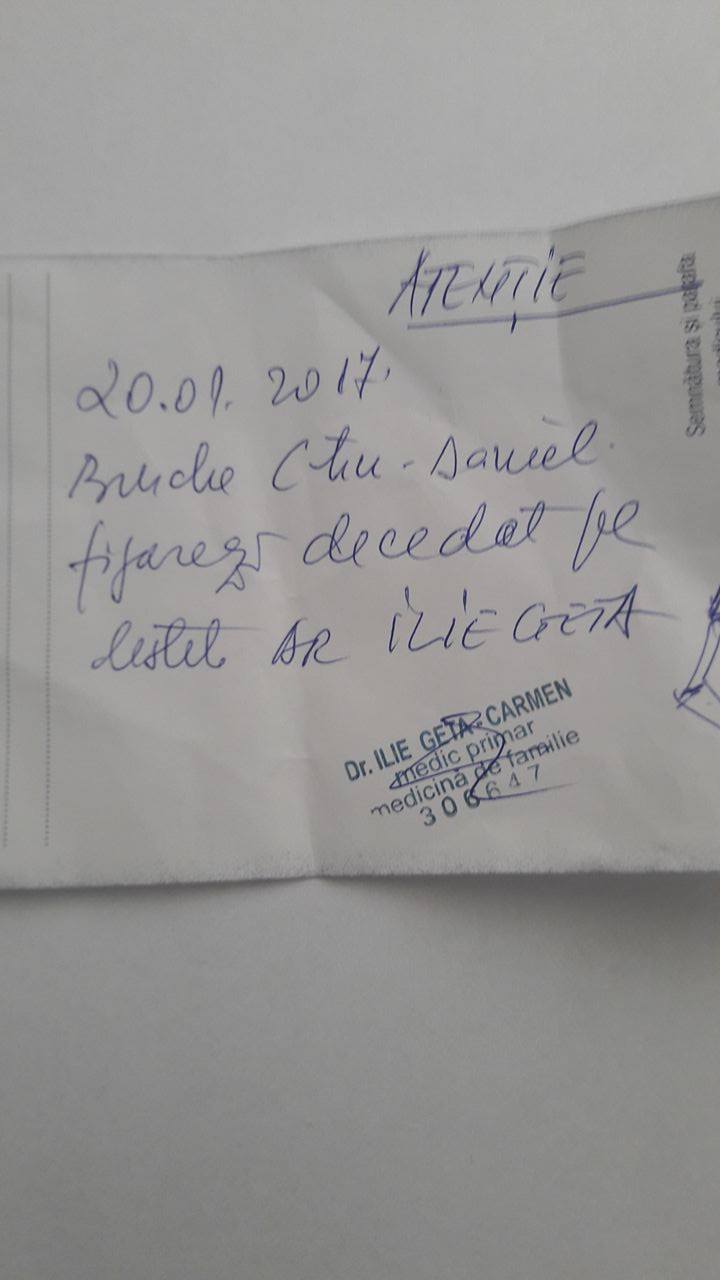 ATENȚIE
20.01. 2017.
Ctin - Daniel.
figurează decedat pe
DR ILIE GETA
Dr. ILIE GETA-CARMEN
medic primar
medicină de familie
306647
Semnătura și parafa
medicului